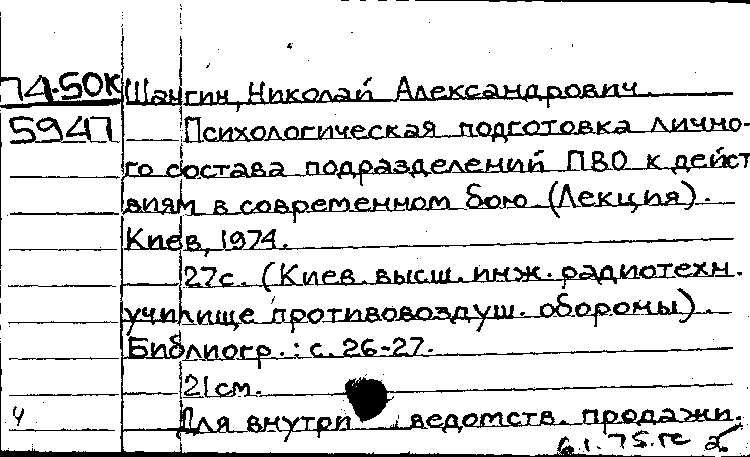 74-50к Шангин, Николай Александрович.
5947 Психологическая подготовка лично-
го состава подразделений ПВО к дейст
виям в современном бою (Лекция).
Киев, 1974.
27с. (Киев. высш. инж. радиотехн.
училище противовоздуш. обороны).
Библиогр.: с. 26-27.
21см.
Ч Для внутриведомств. продажи.
6.1.75.гс